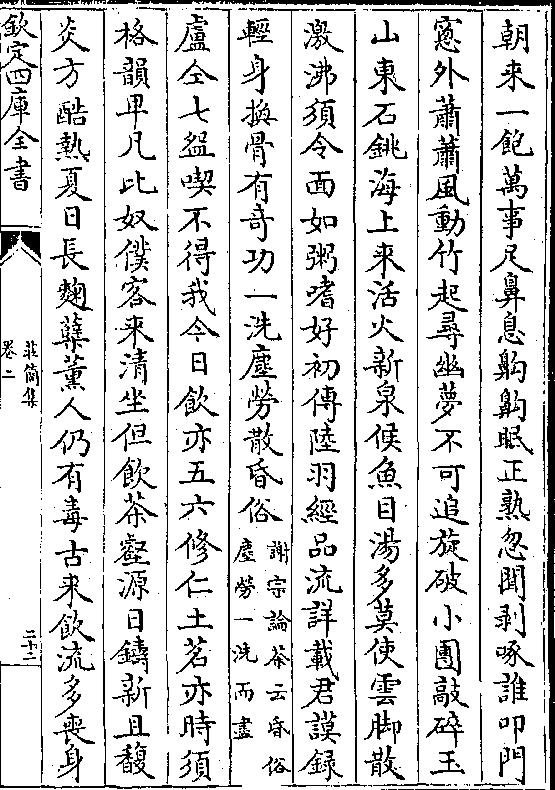 朝來一飽萬事足鼻息齁齁眠正熟忽聞剥啄誰叩門
窻外蕭蕭風動竹起尋幽夢不可追旋破小團敲碎玉
山東石銚海上来活火新泉候魚目湯多莫使雲脚散
激沸須令面如粥嗜好初傳陸羽經品流詳載君謨録
輕身換骨有竒功一洗塵勞散昏俗謝宗論茶云昏俗塵勞一洗而盡
盧仝七盌喫不得我今日飲亦五六修仁土茗亦時須
格韻卑凡比奴僕客来清坐但飲茶壑源日鑄新且馥
炎方酷熱夏日長麴糵薰人仍有毒古来飲流多喪身
欽定四庫全書
莊簡集
卷二
二十二